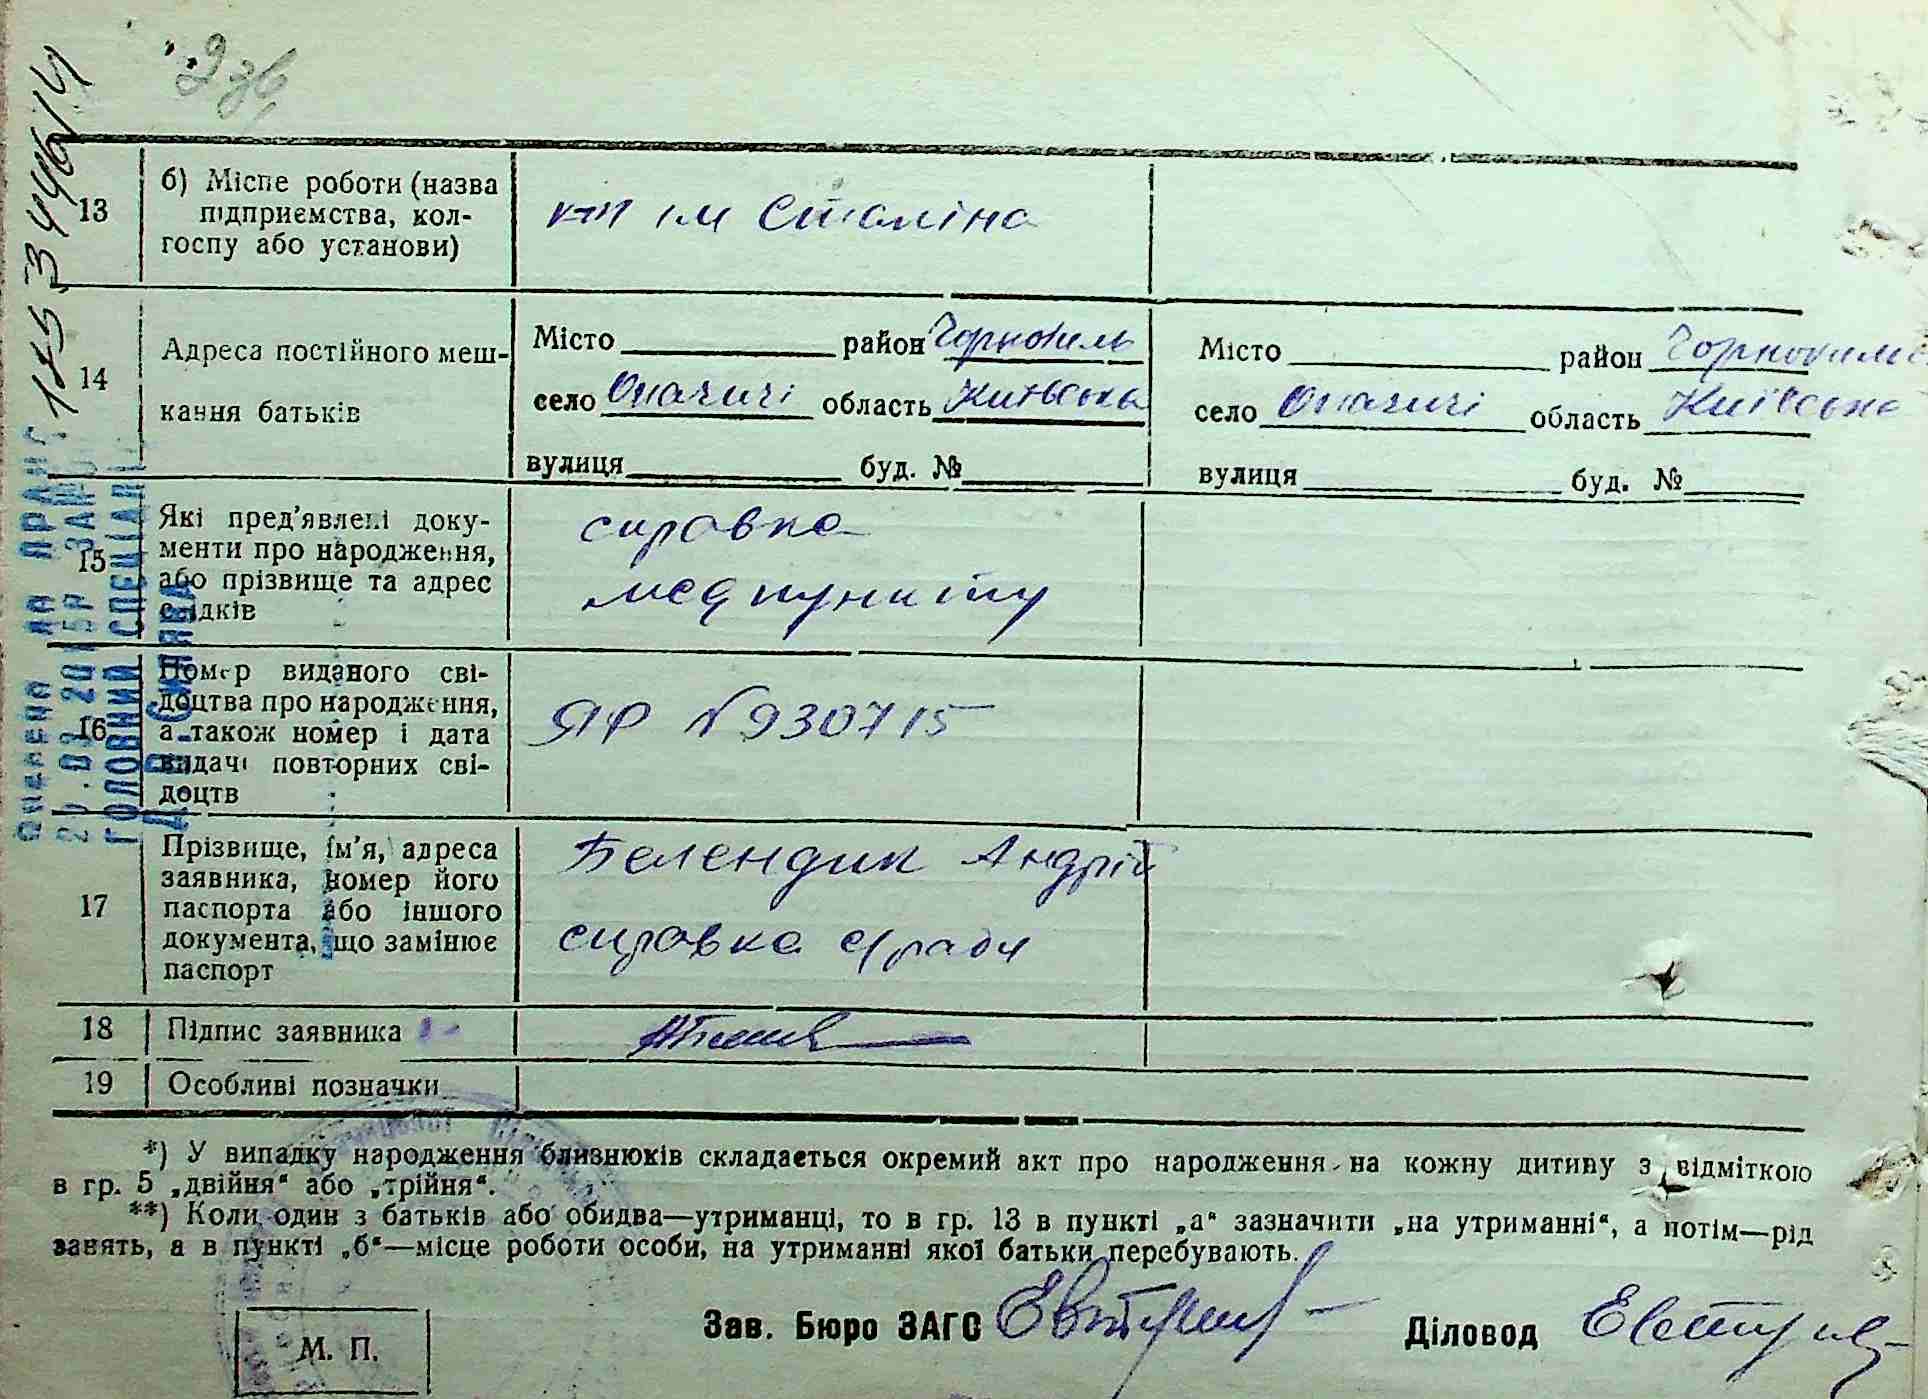 2 зв
13
б) Місце роботи (назва
підприємства, кол-
госпу або установи)
к-п ім Сталіна
14
Адреса постійного меш-
кання батьків
Місто район Чорнобиль
село Опачичі область Київська
вулиця буд. №
Місто район Чорнобиль
село Опачичі область Київська
вулиця буд. №
15
Які пред'явлені доку-
менти про народження,
або прізвище та адрес
свідків
справка
медпункту
16
Номер виданого сві-
доцтва про народження,
а також номер і дата
видачі повторних сві-
доцтв
ЯР № 930715
17
Прізвище, ім'я, адреса
заявника, номер його
паспорта або іншого
документа, що замінює
паспорт
Белендик Андрій
справка с/ради
18
Підпис заявника
19
Особливі позначки
*) У випадку народження близнюків складається окремий акт про народження на кожну дитину з відміткою
в гр. 5 „двійня“ або „трійня“.
**) Коли один з батьків або обидва—утриманці, то в гр. 13 в пункті „а“ зазначити „на утриманні“, а потім—рід
занять, а в пункті „б“—місце роботи особи, на утриманні якої батьки перебувають.
Зав. Бюро ЗАГС
Діловод
М. П.
ГОЛОВНИЙ СПЕЦІАЛ